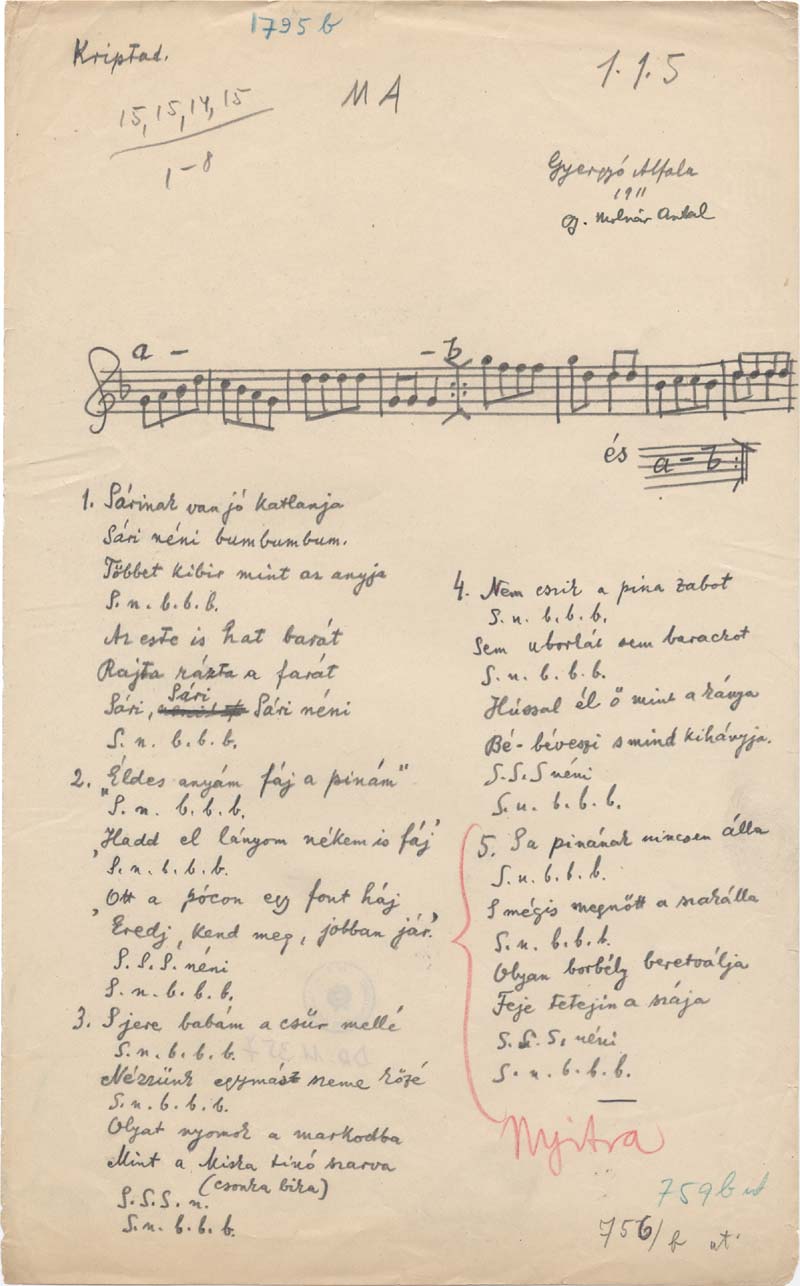 1795 b
Kriptad.
MA
1.1.5
15, 15, 14, 15
1-8
Gyergyó Alfalu
1911
Gy. Molnár Antal
a -
- b
és a - b
1. Sárinak van jó katlanja
Sári néni bumbumbum.
Többet kibir mint az anyja
S. n. b. b. b.
Az este is hat barát
Rajta rázta a farát
Sári, Sári Sári néni
S. n. b. b. b.
2. „Éldes anyám fáj a pinám"
S. n. b. b. b.
„Hadd el lányom nékem is fáj"
S. n. b. b. b.
„Ott a pócon egy font háj
Eredj, kend meg, jobban jár."
S. S. S. néni
S. n. b. b. b.
3. S jere babám a csűr mellé
S. n. b. b. b.
Nézzünk egymász szeme közé
S. n. b. b. b.
Olyat nyomok a markodba
Mint a Miska tinó szarva
(csonka bika)
S. S. S. n.
S. n. b. b. b.
4. Nem eszik a pina zabot
S. n. b. b. b.
Sem uborkát sem barackot
S. n. b. b. b.
Hússal él ő mint a kánya
Bé-béveszi s mind kihányja.
S. S. S néni
S. n. b. b. b.
5. S a pinának nincsen álla
S. n. b. b. b.
S mégis megnőtt a szakálla
S. n. b. b. b.
Olyan borbély beretválja
Feje tetején a szája
S. S. S. néni
S. n. b. b. b.
Nyitra
759 b ut
756/b ut